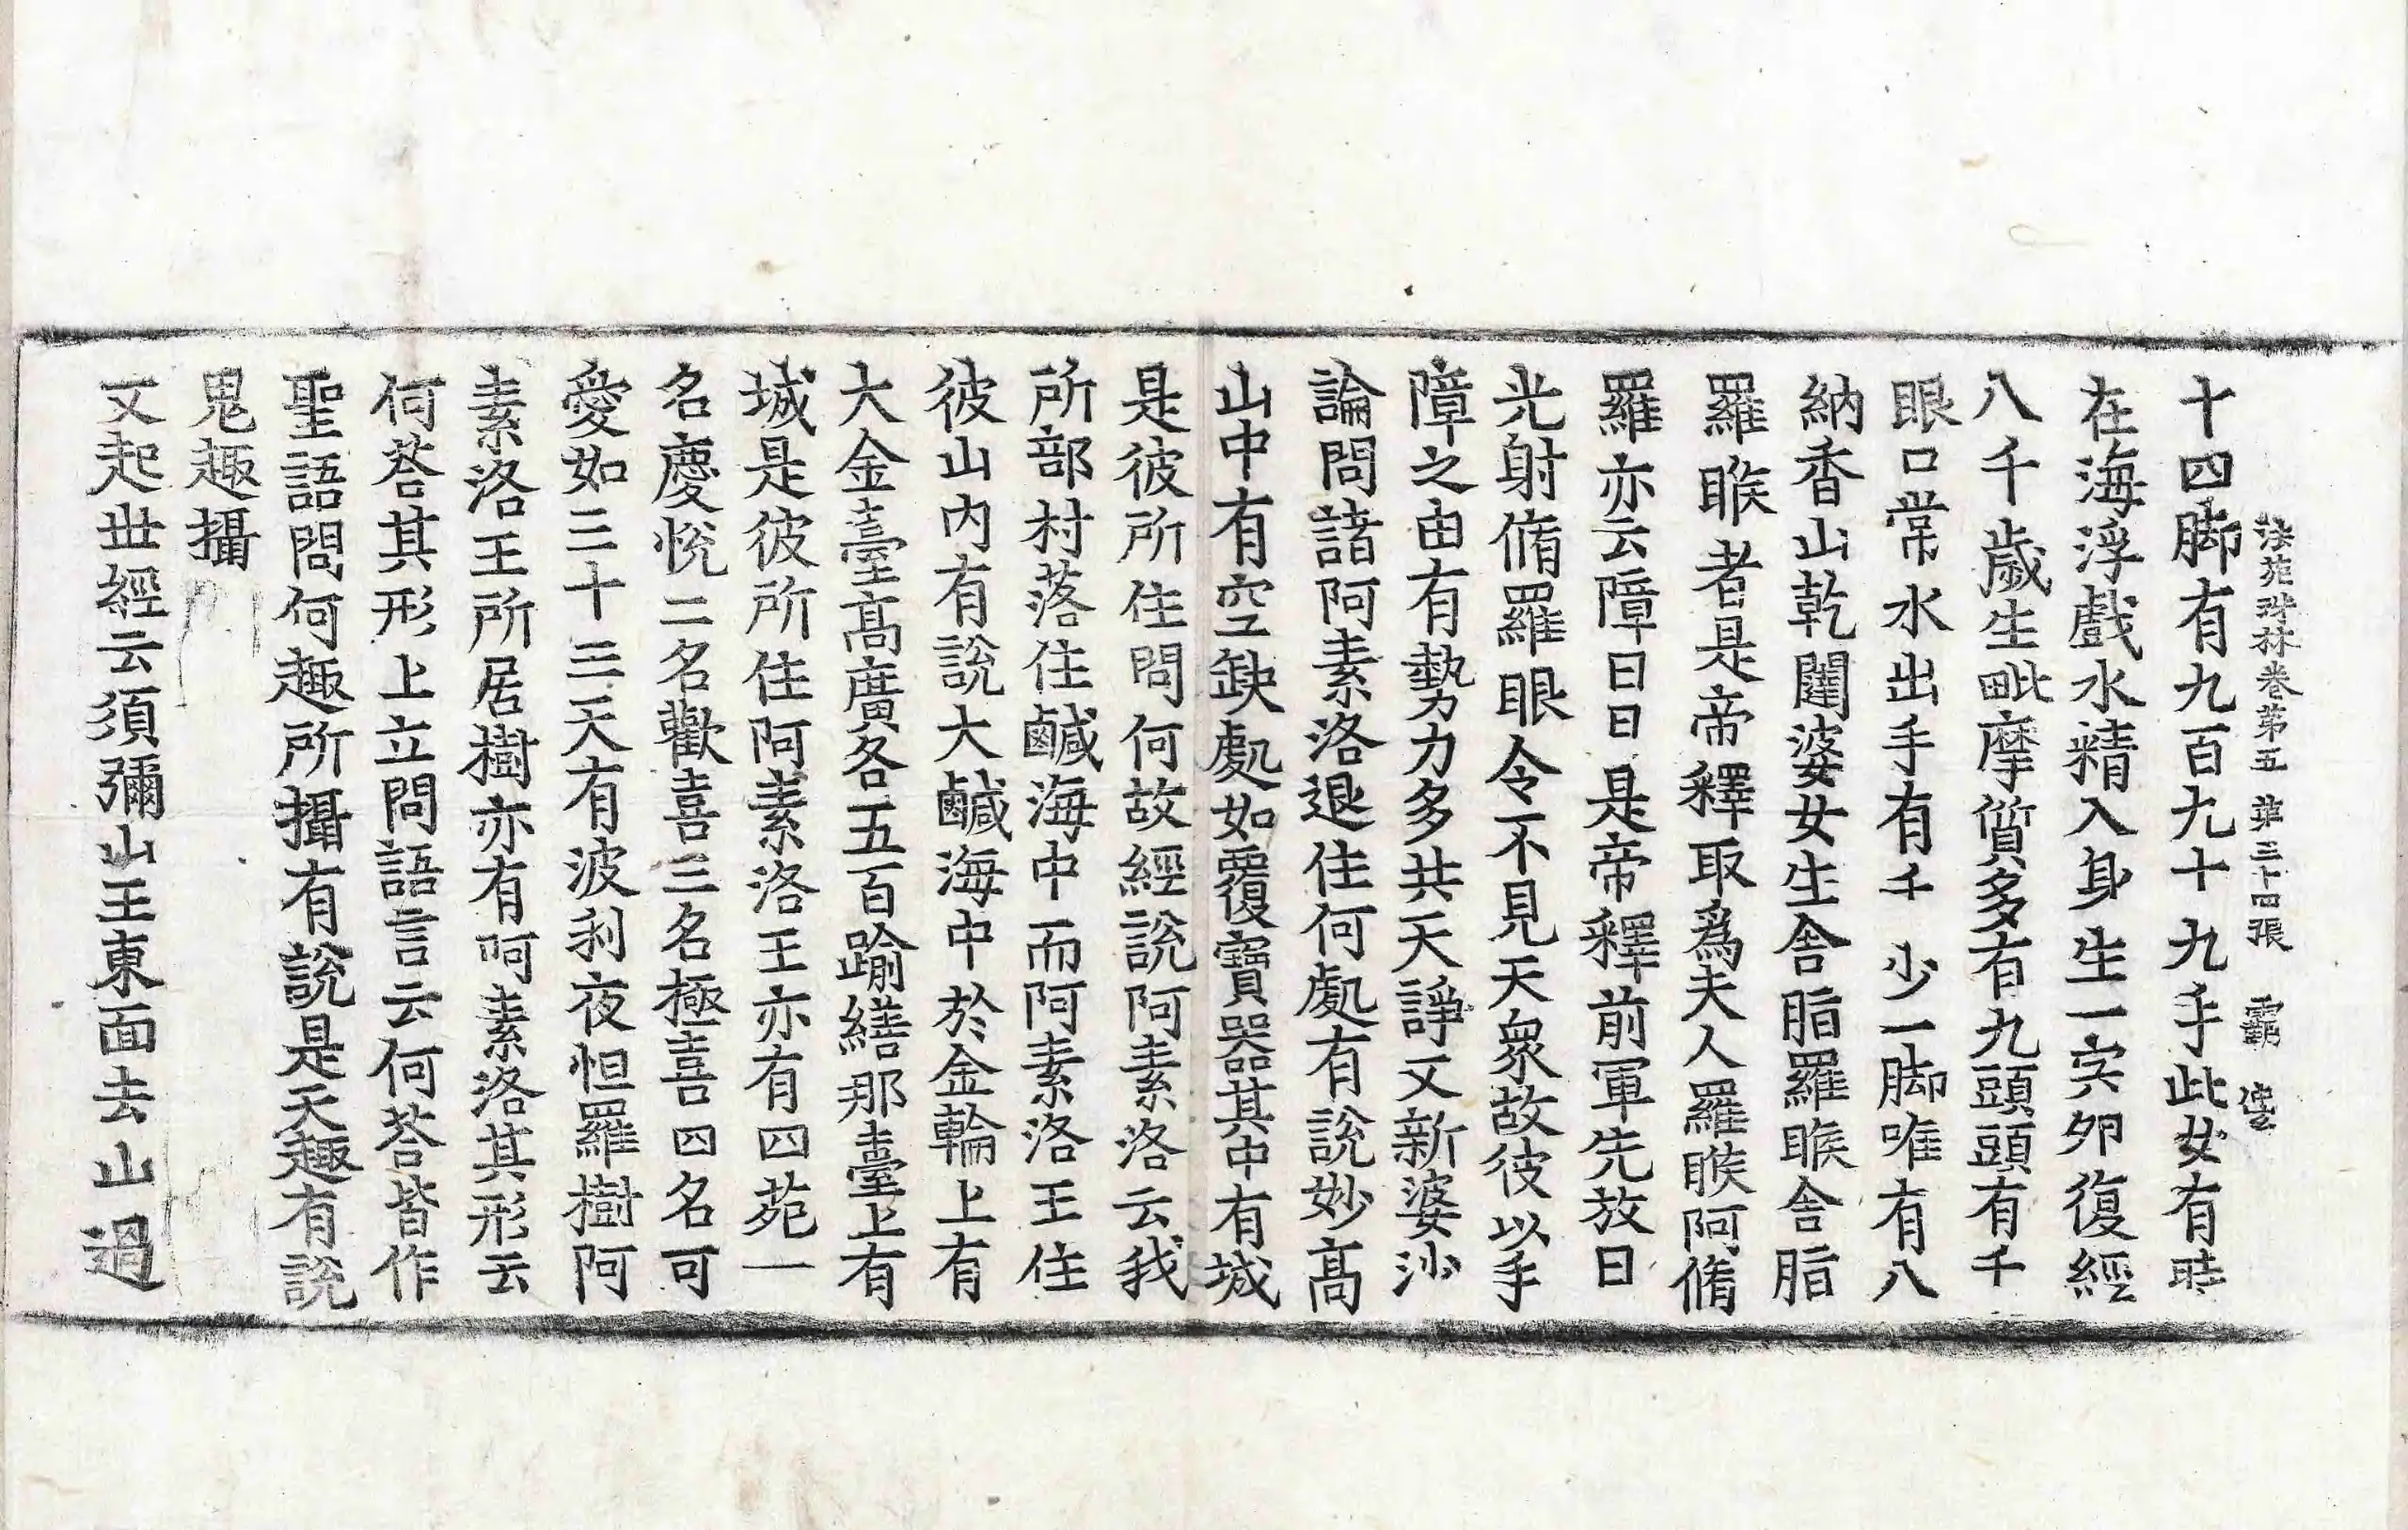 法苑珠林卷第五 苐三十四張 霸
十四脚有九百九十九手此女有時
在海浮戲水精入身生一宍卵復經
八千歲生毗摩質多有九頭頭有千
眼口常水出手有千少一脚唯有八
納香山乾闥婆女生舍脂羅睺舍脂
羅睺者是帝釋取爲夫人羅睺阿脩
羅亦云障日日是帝釋前軍先放日
光射脩羅眼令不見天衆故彼以手
障之由有勢力多共天諍又新婆沙
論問諸阿素洛退住何處有說妙高
山中有空缺處如覆寶器其中有城
是彼所住問何故經說阿素洛云我
所部村落住鹹海中而阿素洛王住
彼山內有說大鹹海中於金輪上有
大金臺高廣各五百踰繕那臺上有
城是彼所住阿素洛王亦有四苑一
名慶悅二名歡喜三名極喜四名可
愛如三十三天有波利夜怛羅樹阿
素洛王所居樹亦有呵素洛其形云
何荅其形上立問語言云何荅皆作
聖語問何趣所攝有說是天趣有說
鬼趣攝
又起世經云須彌山王東面去山過